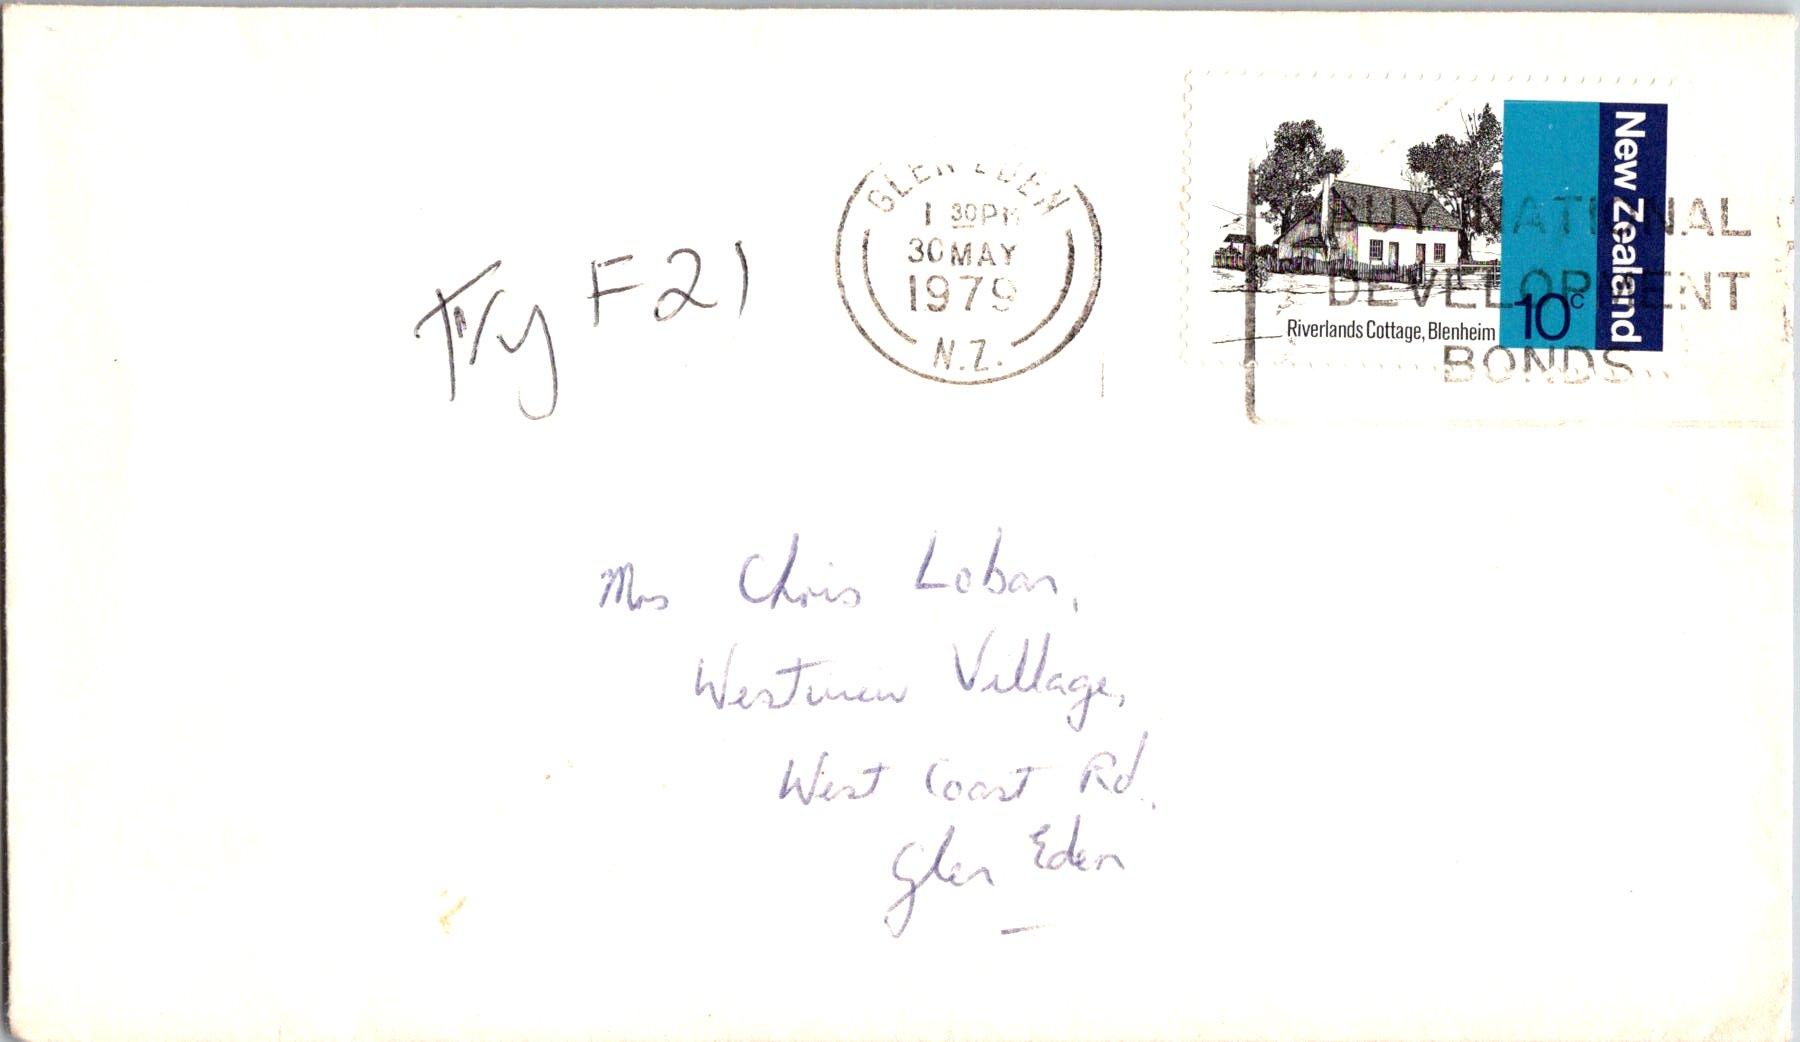 GLEN EDEN
1 30PM
30 MAY
1979
N.Z.
New Zealand
BUY NATIONAL
DEVELOPMENT
BONDS
10c
Riverlands Cottage, Blenheim
Try F21
Mrs Chris Loban,
Westview Village,
West Coast Rd.,
Glen Eden